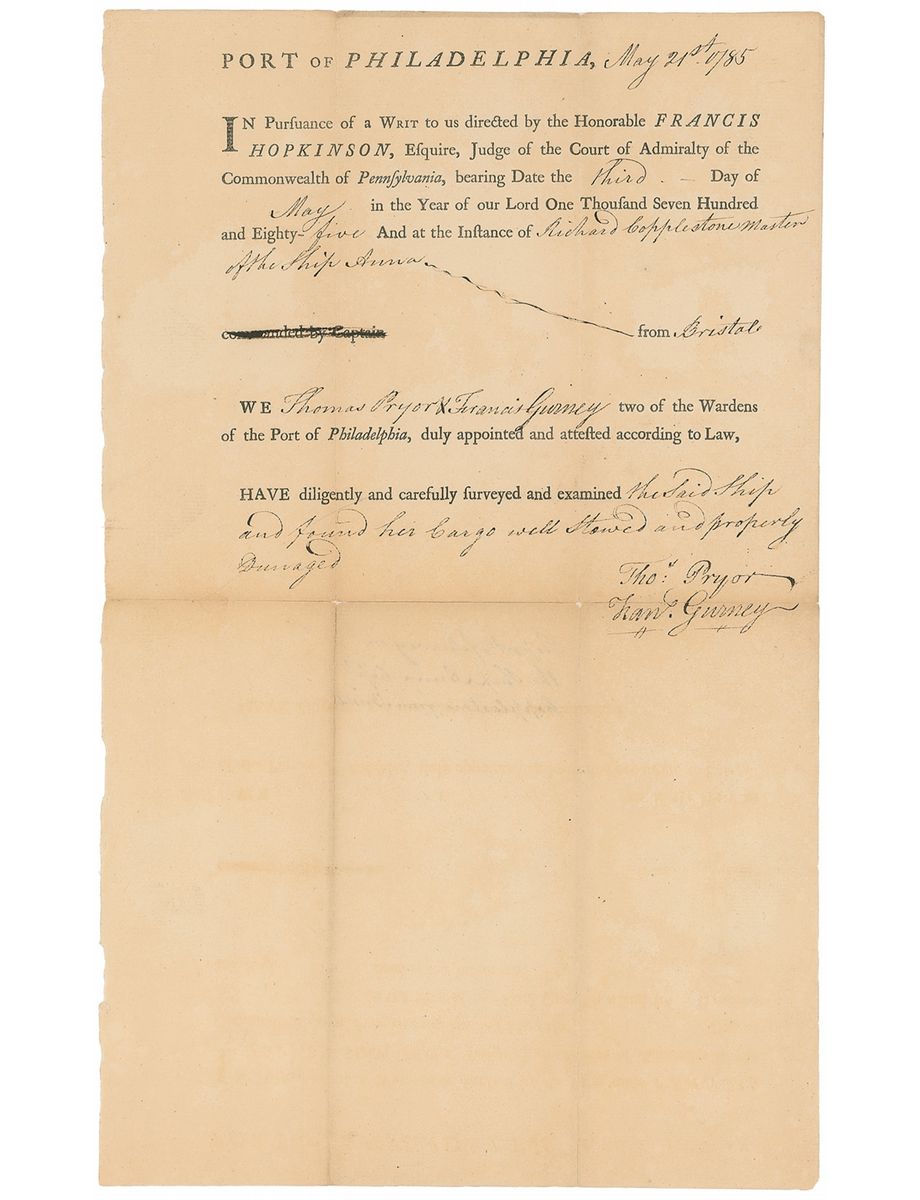 PORT OF PHILADELPHIA, May 21st. 1785
IN Purſuance of a WRIT to us directed by the Honorable FRANCIS
HOPKINSON, Eſquire, Judge of the Court of Admiralty of the
Commonwealth of Pennſylvania, bearing Date the third . — Day of
May in the Year of our Lord One Thouſand Seven Hundred
and Eighty-five And at the Inſtance of Richard Copplestone Master
of the Ship Anna
commanded by Captain from Bristol
WE Thomas Pryor & Francis Gurney two of the Wardens
of the Port of Philadelphia, duly appointed and atteſted according to Law,
HAVE diligently and carefully ſurveyed and examined the Said Ship
and found her Cargo well Stowed and properly
Dunaged
Thos. Pryor
Frans. Gurney